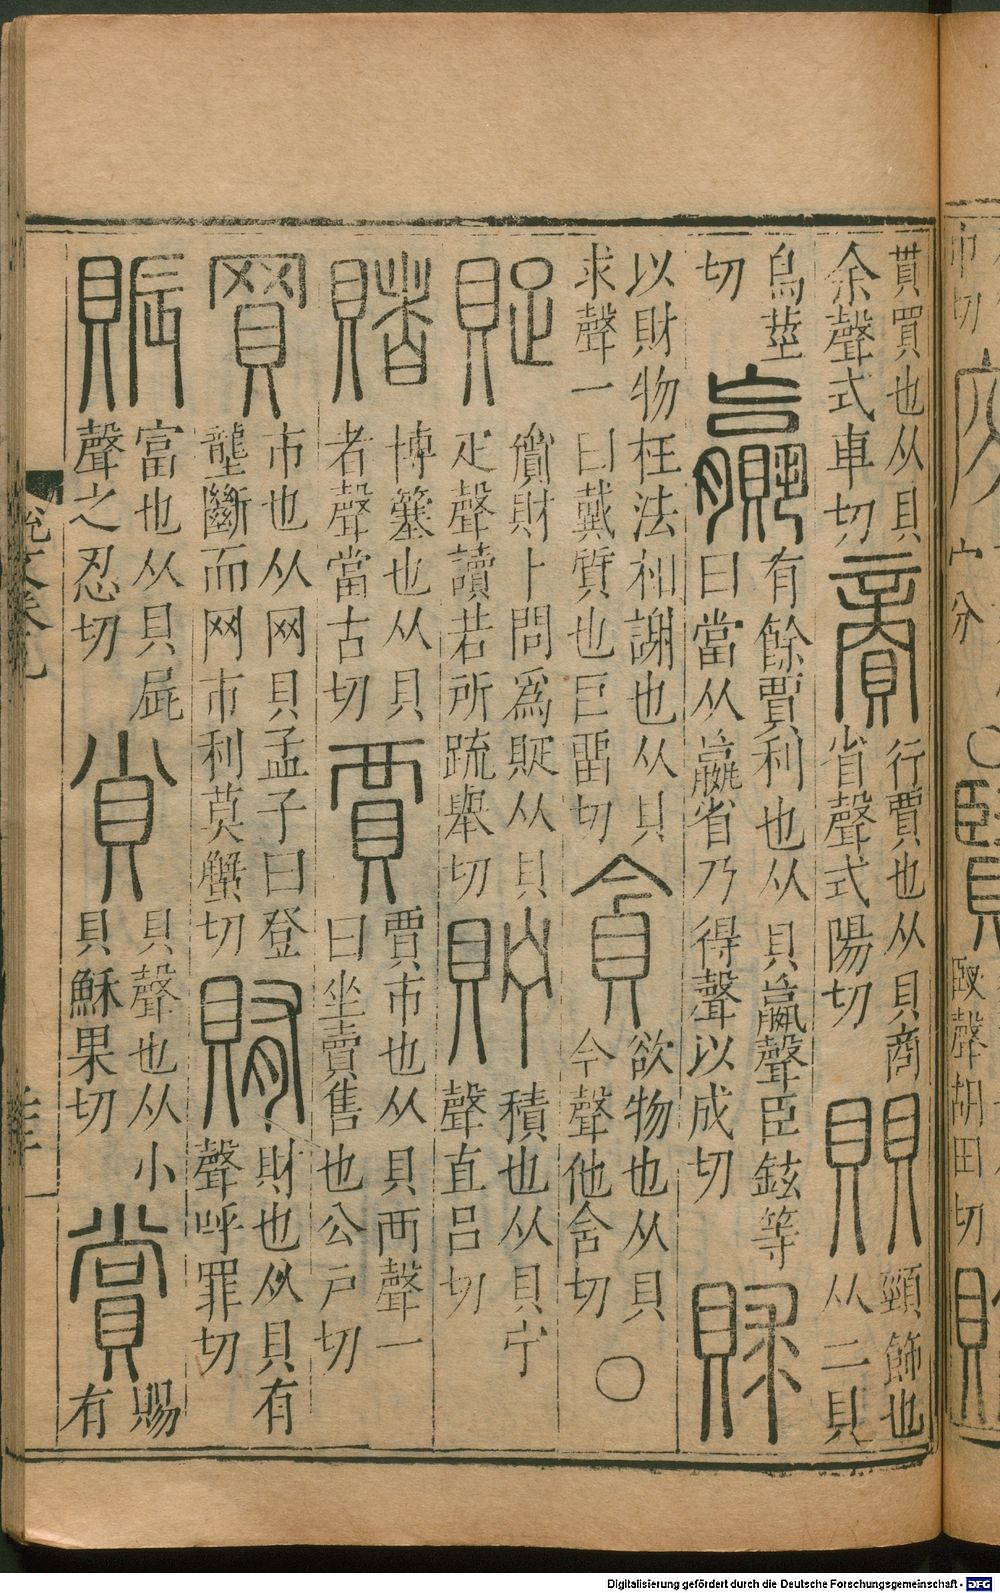 貰買也从貝
余聲式車切
𧶜
行賈也从貝商
省聲式陽切
賏
頸飾也
从二貝
烏莖
切
贏
有餘賈利也从貝𣎆聲臣鉉等
曰當从嬴省乃得聲以成切
賕
以財物枉法相謝也从貝
求聲一曰戴質也巨畱切
貪
欲物也从貝
今聲他含切
○
𧵩
財卜問爲𧵩从貝
疋聲讀若所疏舉切
貯
積也从貝宁
聲直呂切
賭
博簺也从貝
者聲當古切
賈
賈市也从貝襾聲一
曰坐賣售也公戶切
買
市也从网貝孟子曰登
壟斷而网市利莫蟹切
賄
財也从貝有
聲呼罪切
賑
富也从貝辰
聲之忍切
𧴪
貝聲也从小
貝穌果切
賞
賜
有
說文卷九
臤聲胡田切
Digitalisierung gefördert durch die Deutsche Forschungsgemeinschaft - DFG